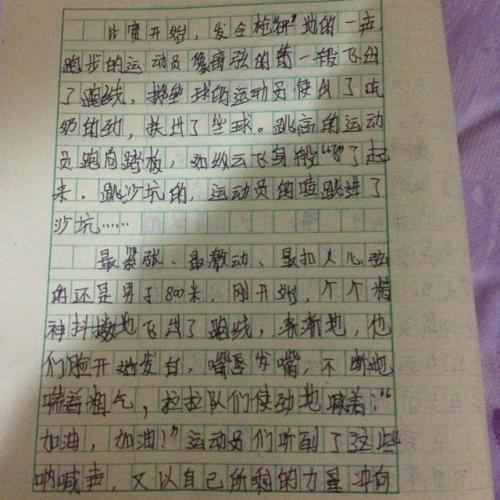 比赛开始，发令枪"砰"地的一声，
跑步的运动员像离弦的箭一般飞出
了跑线，推铅球的运动员使出了吃
奶的劲，扶出了坐球。跳高的运动
员跑向踏板，如纵云飞身般"飞"了起
来。跳沙坑的，运动员的喷跳进了
沙坑……
最紧张、最激动、最扣人心弦
的还是男子800米，刚开始，个个精
神抖擞地飞出了跑线，渐渐地，他
们脸开始发白，嘴唇发嘴，不断地
喘着粗气，拉拉队们使劲地喊着："
加油，加油！"运动员们听到了这些
呐喊声，又以自己所剩的力量冲向